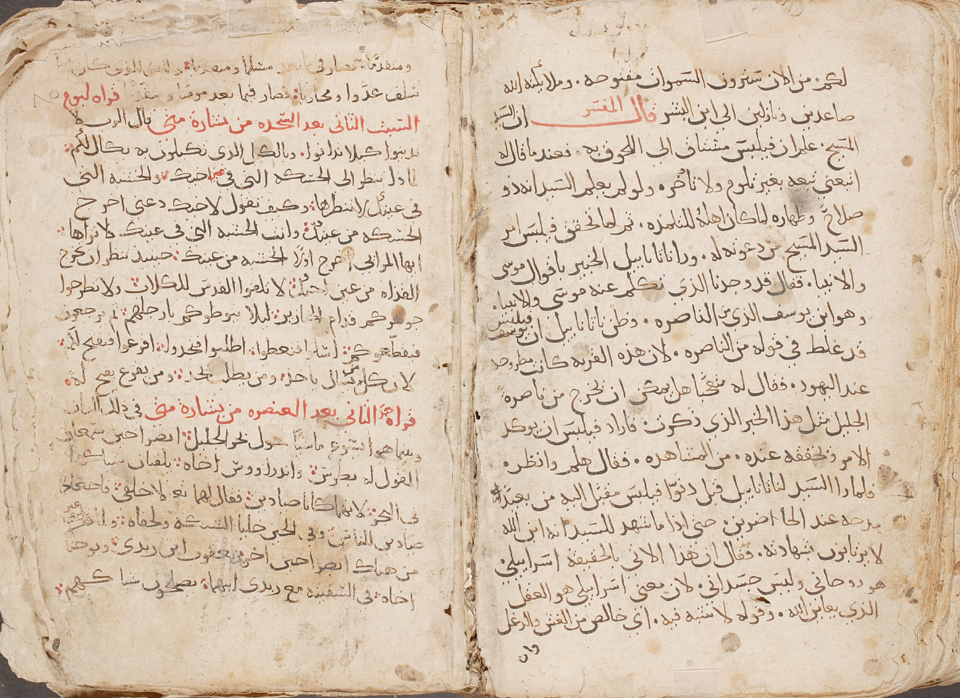 لكم من الان سترون السموات مفتوحه . وملايكة الله
صاعدين ونازلين الي ابن البشر قال المفسر ان السيد
المسيح علم ان فيلبس مشتاق الي اللحوق به . فعندما قال له
اتبعني تبعه بغير تلوم ولا تأخر . ولو لم يعلم السيد انه ذو
صلاح وطهاره لما كان اهله للتلمذه . ثم لما تحقق فيلبس امر
السيد المسيح من دعوته له . وراا ناثاناييل الخبير باقوال موسي
والانبيا . فقال قد وجدنا الذي تكلم عنه موسي والانبيا .
وهو ابن يوسف الذي من الناصره . وظن ناثاناييل ان فيلبس
قد غلط في قوله من الناصره . لان هذه القريه كانت مطروحه
عند اليهود . فقال له متعجبا هل يمكن ان يخرج من ناصرة
الجليل مثل هذا الخير الذي ذكرت . فاراد فيلبس ان يوكد
الامر ويحققه عنده . من المشاهده . فقال هلم وانظر .
فلما راا السيد لناثاناييل قبل دنوا فيلبس مقبل اليه من بعيد
مدحه عند الحاضرين . حتي اذا ما شهد للسيد انه ابن الله
لا يرتابون شهادته . فقال ان هذا الاتي بالحقيقه اسراييلي
هو روحاني وليس جسداني . لان معني اسراييلي هو العقل
الذي يعاين الله . وقوله لا غش فيه . اي خالص من الغش والدغل
وان
ومتقدما فصار في
سلف عدوا ومحاربا فصار فيما بعد قراه ليوم
السبت الثاني بعد العنصره من بشارة متي قال الرب لا
تدينوا كيلا تدانوا وبالكيل الذي تكيلون به يكال لكم
لماذا تنظر الي الخشبه التي في عين اخيك والخشبه التي
في عينك لا تنظرها وكيف تقول لاخيك دعني اخرج
الخشبه من عينك وانت الخشبه التي في عينك لا تراها
ايها المرائي اخرج اولا الخشبه من عينك حينيذ تنظر ان تخرج
القذاه من عين اخيك لا تلقوا القدس للكلاب ولا تطرحوا
جوهركم قدام الخنازير ليلا يدوسوكم بارجلهم ثم يرجعون
فتقطعوكم اسلوا فتعطوا اطلبوا فتجدوا اقرعوا فيفتح لكم
لان كل من يسال ياخذ ومن يطلب يجد ومن يقرع يفتح له
قراة الاحد الثاني بعد العنصره من بشارة متي في ذلك الزمان
وبينما هو يسوع ماشيا حول بحر الجليل ابصر اخوين سمعان
المقول له بطرس واندراووس اخاه يلقيان شباكهما
في البحر لانهما كانا صيادين فقال لهما تعالا خلفي فاجعلكما
صيادين الناس وفي الحين خليا الشبكه ولحقاه ولما
من هناك ابصر اخوين اخرين يعقوب ابن زبدي ويوحنا
اخاه في السفينه مع زبدي ابيهما يصلحون شباكهم